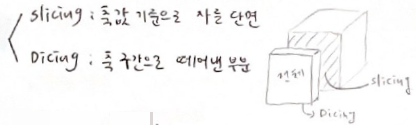 slicing : 축값 기준으로 자를 단면
Dicing : 축 구간으로 떼어낸 부분
전체
slicing
Dicing